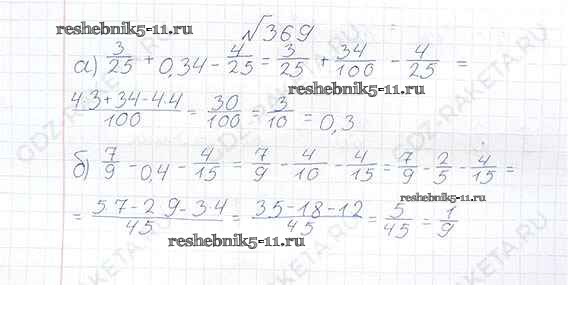 √369
reshebnik5-11.ru
а) 3/25 + 0,34 - 4/25 = 3/25 + 34/100 - 4/25 =
reshebnik5-11.ru
4·3+34-4·4/100 = 30/100 = 3/10 = 0,3
б) 7/9 - 0,4 - 4/15 = 7/9 - 4/10 - 4/15 = 7/9 - 2/5 - 4/15 =
reshebnik5-11.ru
= 5·7-2·9-3·4/45 = 35-18-12/45 = 5/45 = 1/9
reshebnik5-11.ru
GDZ-RAKETA.RU
GDZ-RAKETA.RU